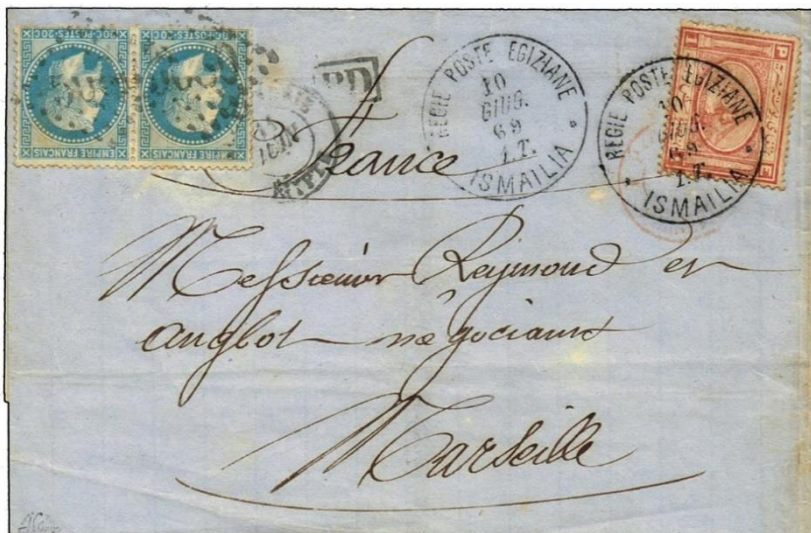 20C·POSTES·20C 20C·POSTES·20C
EMPIRE FRANÇAIS EMPIRE FRANÇAIS
PD
REGIE POSTE EGIZIANE
10
GIUG.
69
I.T.
ISMAILIA
REGIE POSTE EGIZIANE
10
GIUG.
69
I.T.
ISMAILIA
P E
1
France
Messieurs Reymond et
Anglot négociants
Marseille